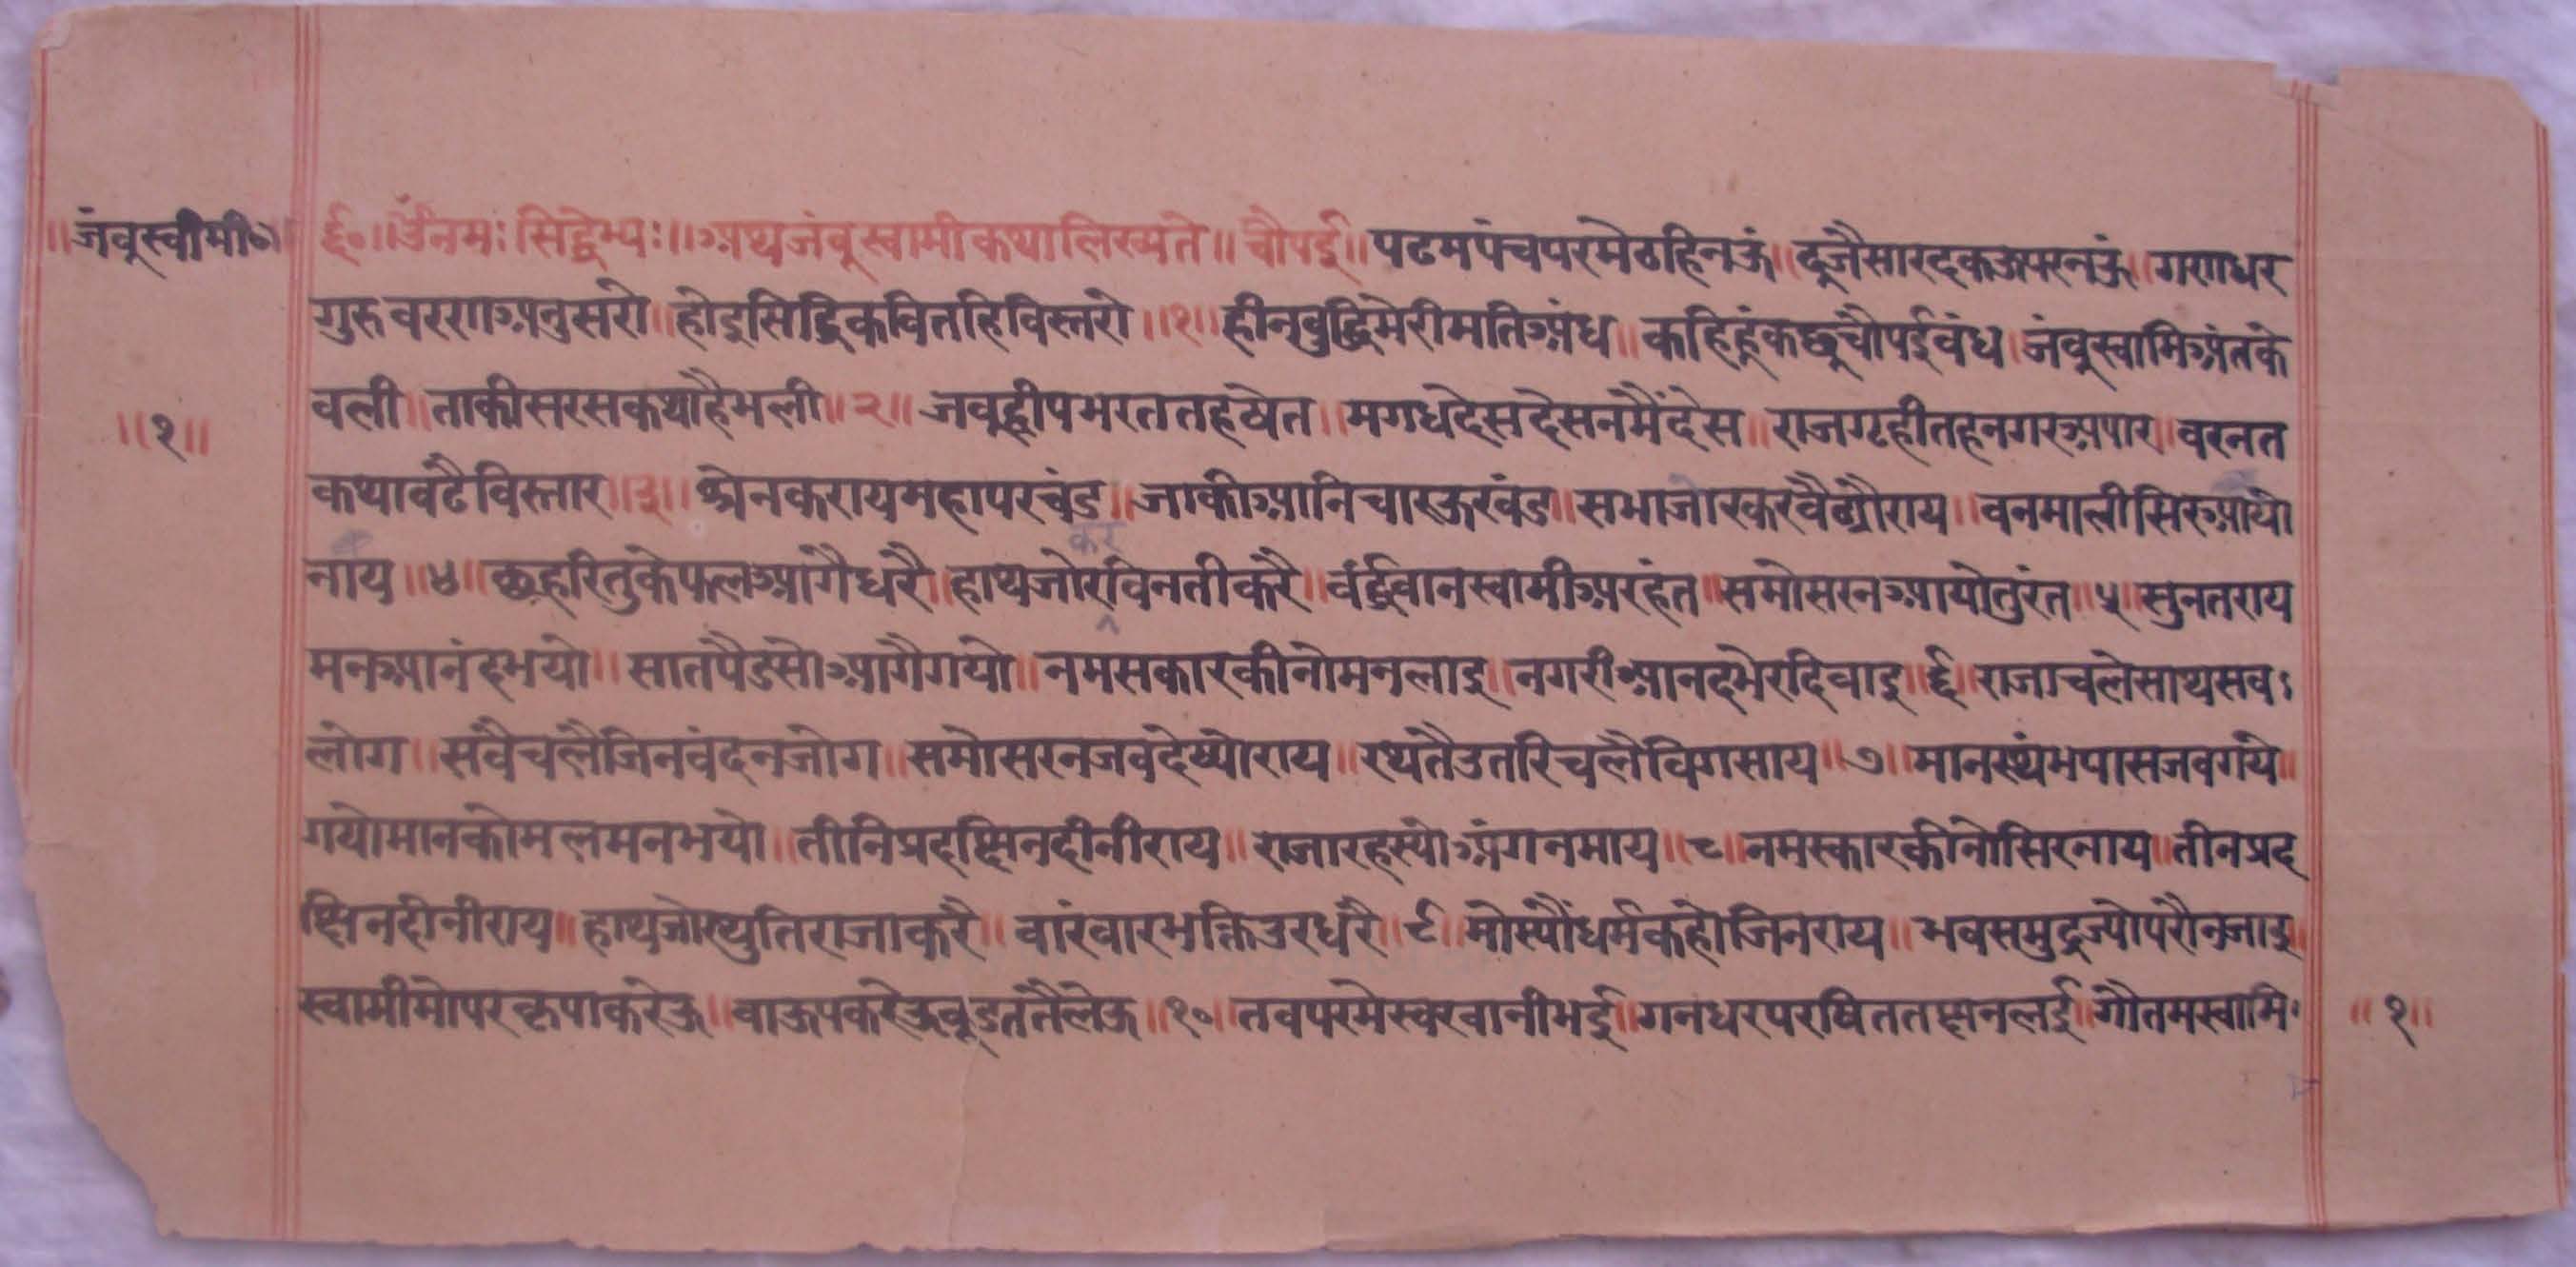 ॥जंवूस्वीमी०॥
ई०॥ॐनमः सिद्धेभ्यः॥अथजंवूस्वामीकथालिख्यते॥चौपई॥पढमपंचपरमेठहिनऊं॥दूजैसारदकऊपरनऊं॥गराधर
गुरुवररााअनुसरो॥होइसिद्धिकवितहिविस्तरो॥१॥हीनवुद्धिमेरीमतिअंध॥कहिहूंकछूचौपईवंध॥जंवूस्वामिअंतके
वली॥ताकीसरसकथाहैभली॥२॥जवूद्वीपभरततहषेत॥मगधदेसदेसनमैंदेस॥राजग्रहीतहनगरअपार॥वरनत
॥१॥
कथावढैविस्तार॥३॥श्रेनकरायमहापरचंड॥जाकीआनिचारऊखंड॥सभाजोरकरवैठ्यौराय॥वनमालीसिरुआयो
कर
नाय॥४॥छहरितुकेफलआगैधरै॥हाथजोरविनतीकरै॥वंर्द्धवानस्वामीअरहंत॥समोसरनआयोतुरंत॥५॥सुनतराय
मनआनंदभयो॥सातपैडसोआगैगयो॥नमसकारकीनोमनलाइ॥नगरीआनदभेरदिवाइ॥६॥राजाचलेसाथसव
लोग॥सवैचलैजिनवंदनजोग॥समोसरनजवदेष्योराय॥रथतैउतरिचलैविगसाय॥७॥मानस्थंभपासजवगये॥
गयोमानकोमलमनभयो॥तीनिप्रदक्षिनदीनीराय॥राजारहस्योअंगनमाय॥८॥नमस्कारकीनोसिरनाय॥तीनप्रद
क्षिनदीनीराय॥हाथजोरथुतिराजाकरै॥वारंवारभक्तिउरधरै॥९॥मोस्यौंधर्मकहोजिनराय॥भवसमुद्रज्योपरौनजाइ॥
स्वामीमोपरकृपाकरेऊ॥वाऊपकरेऊवूडततैलेऊ॥१०॥तवपरमेस्वरवानीभई॥गनधरपरषिततक्षनलई॥गौतमस्वामि
॥१॥